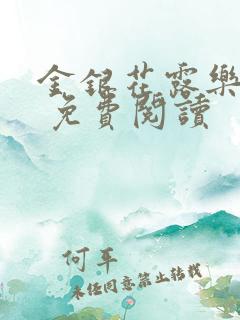 金銀花露樂
免費閱讀
何平
未經同意禁止轉載